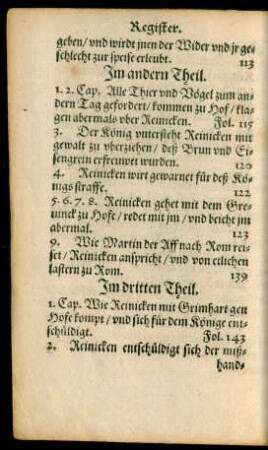 Register.
geben/ vnd wirdt jnen der Wider vnd jr ge-
schlecht zur speise erleubt. 113
Im andern Theil.
1. 2. Cap. Alle Thier vnd Vögel zum an-
dern Tag gefordert/ kommen zu Hof/ kla-
gen abermals vber Reinicken. Fol. 115
3. Der König vntersteht Reinicken mit
gewalt zu vberziehen/ deß Brun vnd Ei-
sengrein erfreuwet wurden. 120
4. Reinicken wirt gewarnet für deß Kö-
nigs straffe. 122
5. 6. 7. 8. Reinicken gehet mit dem Gre-
uinck zu Hofe/ redet mit jm/ vnd beicht jm
abermal. 123
9. Wie Martin der Aff nach Rom rei-
set/ Reinicken anspricht/ vnd von etlichen
lastern zu Rom. 139
Im dritten Theil.
1. Cap. Wie Reinicken mit Grimhart gen
Hofe kompt/ vnd sich für dem Könige ent-
schüldigt. Fol. 143
2. Reinicken entschüldigt sich der miß-
hand-